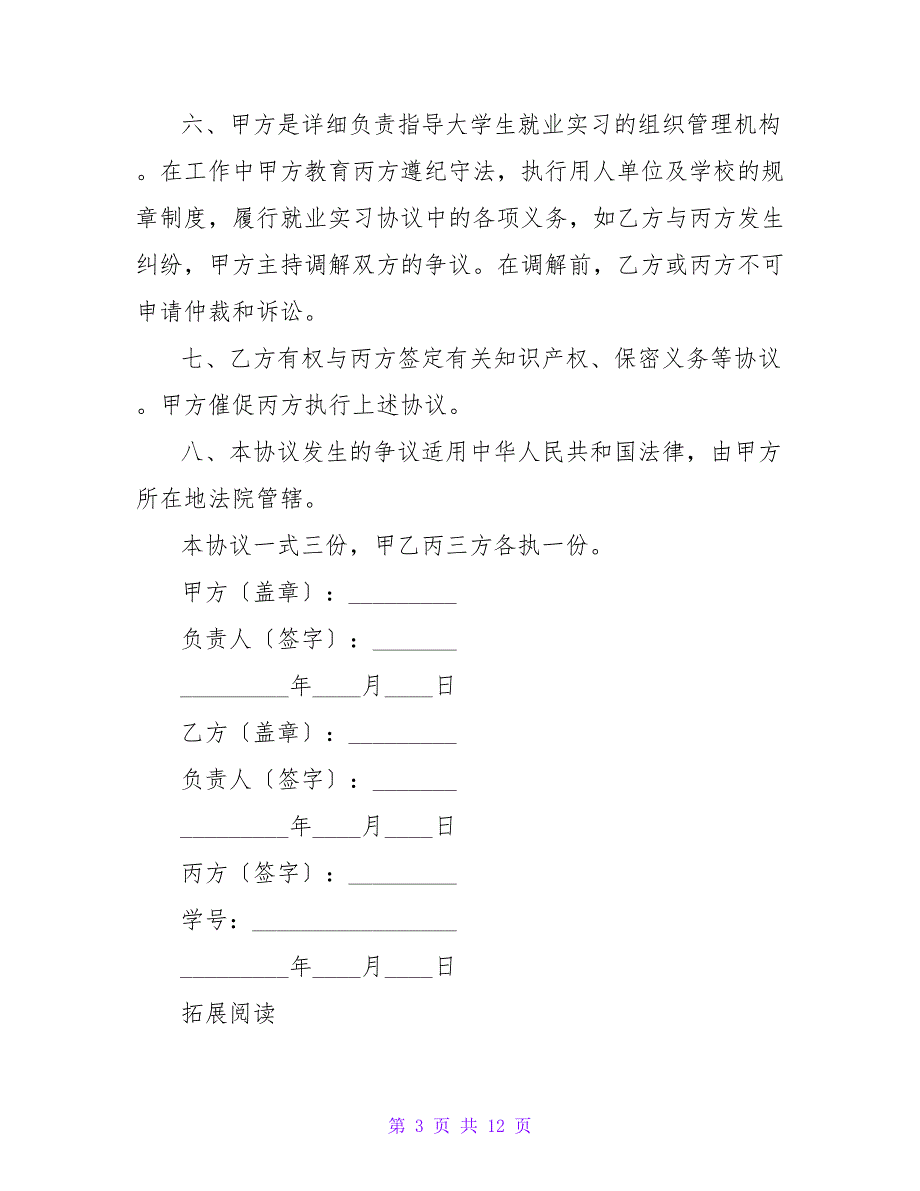 六、甲方是详细负责指导大学生就业实习的组织管理机构
。在工作中甲方教育丙方遵纪守法，执行用人单位及学校的规
章制度，履行就业实习协议中的各项义务，如乙方与丙方发生
纠纷，甲方主持调解双方的争议。在调解前，乙方或丙方不可
申请仲裁和诉讼。
七、乙方有权与丙方签定有关知识产权、保密义务等协议
。甲方催促丙方执行上述协议。
八、本协议发生的争议适用中华人民共和国法律，由甲方
所在地法院管辖。
本协议一式三份，甲乙丙三方各执一份。
甲方〔盖章〕：_________
负责人〔签字〕：_______
_________年____月____日
乙方〔盖章〕：_________
负责人〔签字〕：_______
_________年____月____日
丙方〔签字〕：_________
学号：_________________
_________年____月____日
拓展阅读
第 3 页 共 12 页